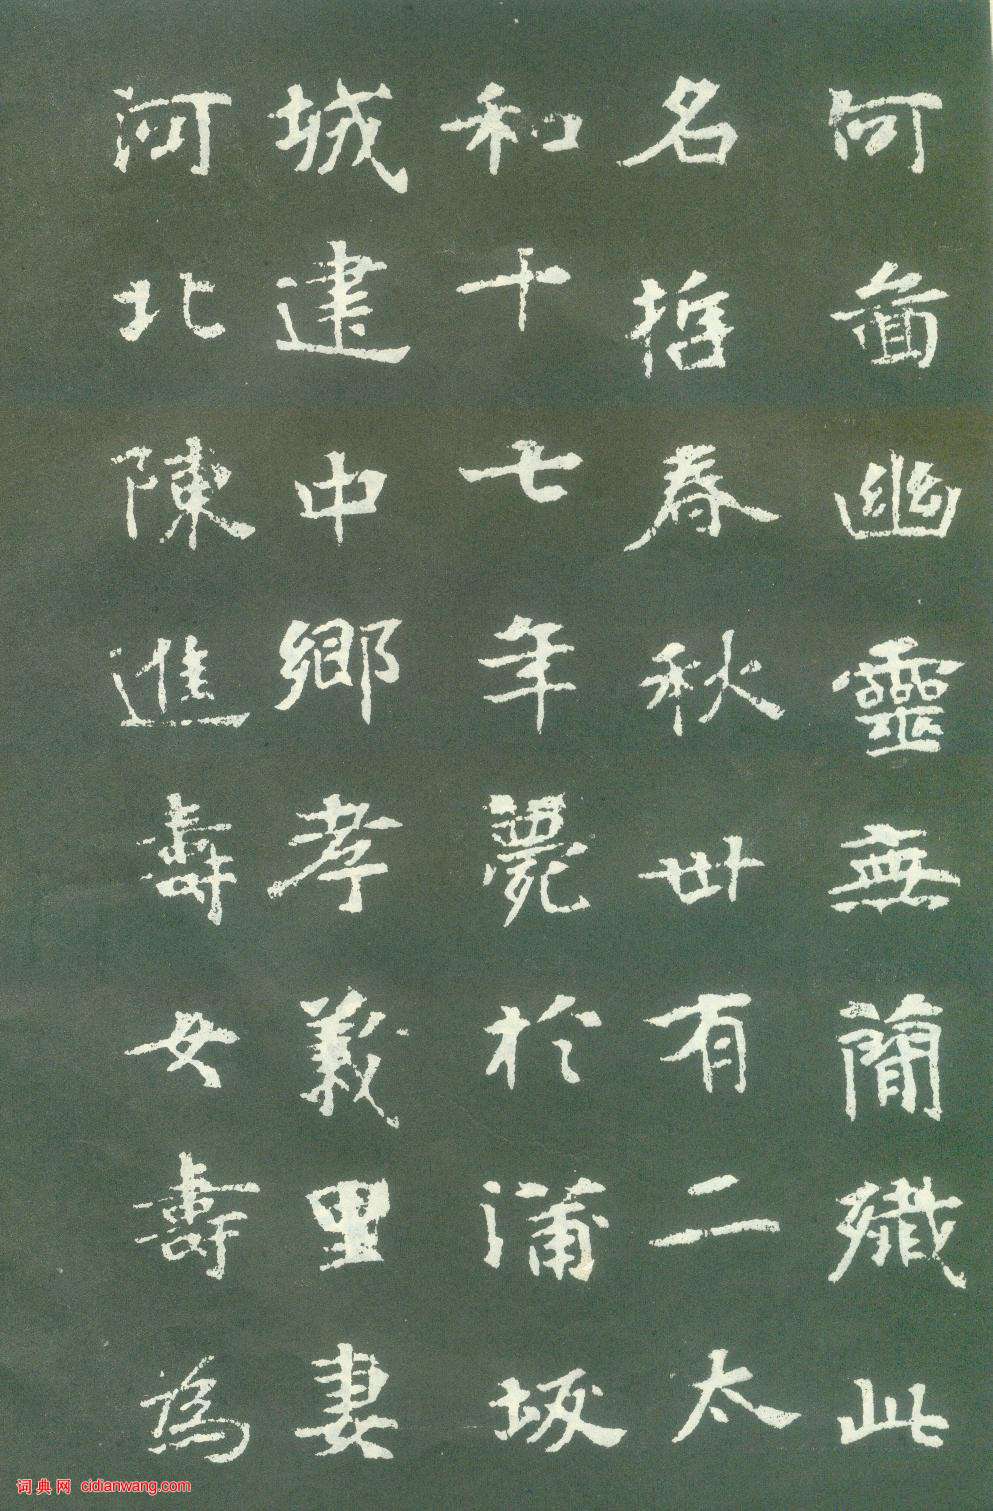 何啚幽靈無簡殲此
名哲春秋卅有二太
和十七年薨於蒲坂
城建中鄉孝義里妻
河北陳進壽女壽為
词典网 cidianwang.com